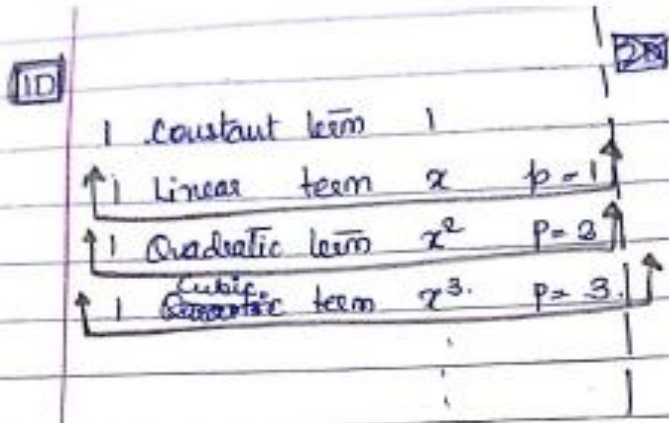 1D
1 Constant term 1
1 Linear term x p = 1
1 Quadratic term x² p = 2
Cubic
1 term x³. p = 3.